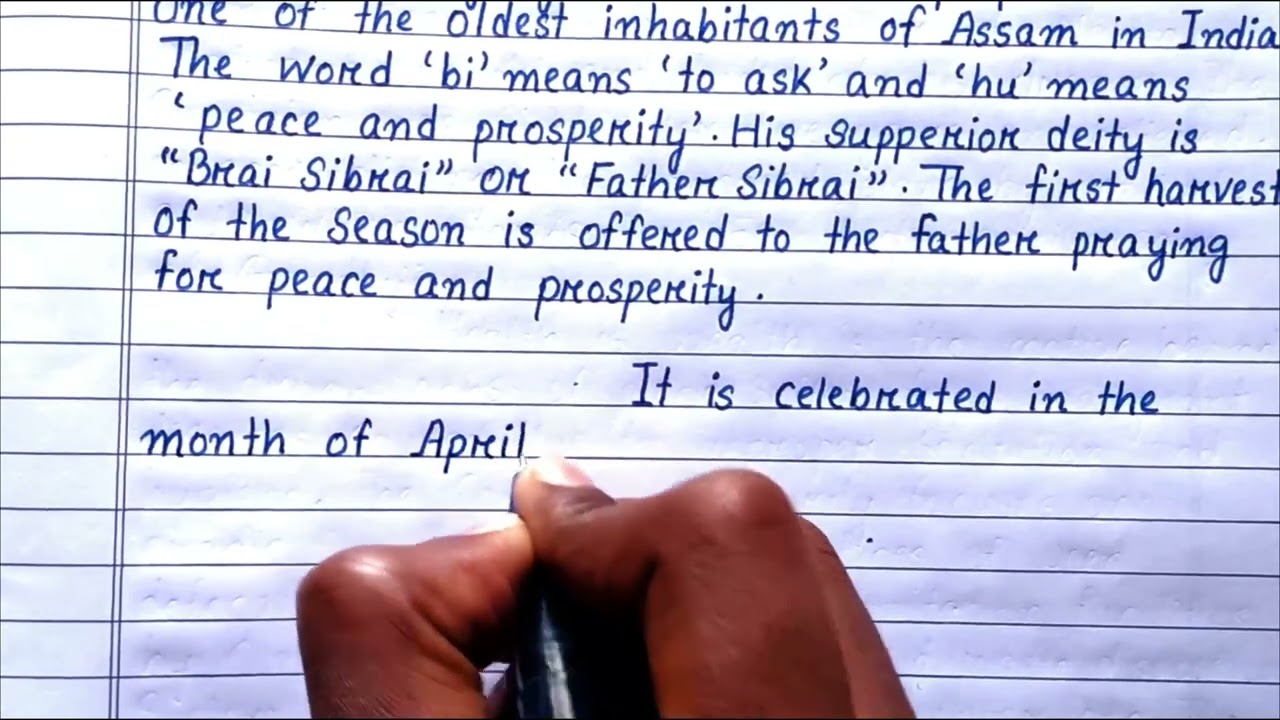 One of the oldest inhabitants of Assam in India
The word 'bi' means 'to ask' and 'hu' means
'peace and prosperity'. His supperior deity is
"Brai Sibrai" or "Father Sibrai". The first harvest
of the season is offered to the father praying
for peace and prosperity.
It is celebrated in the
month of April